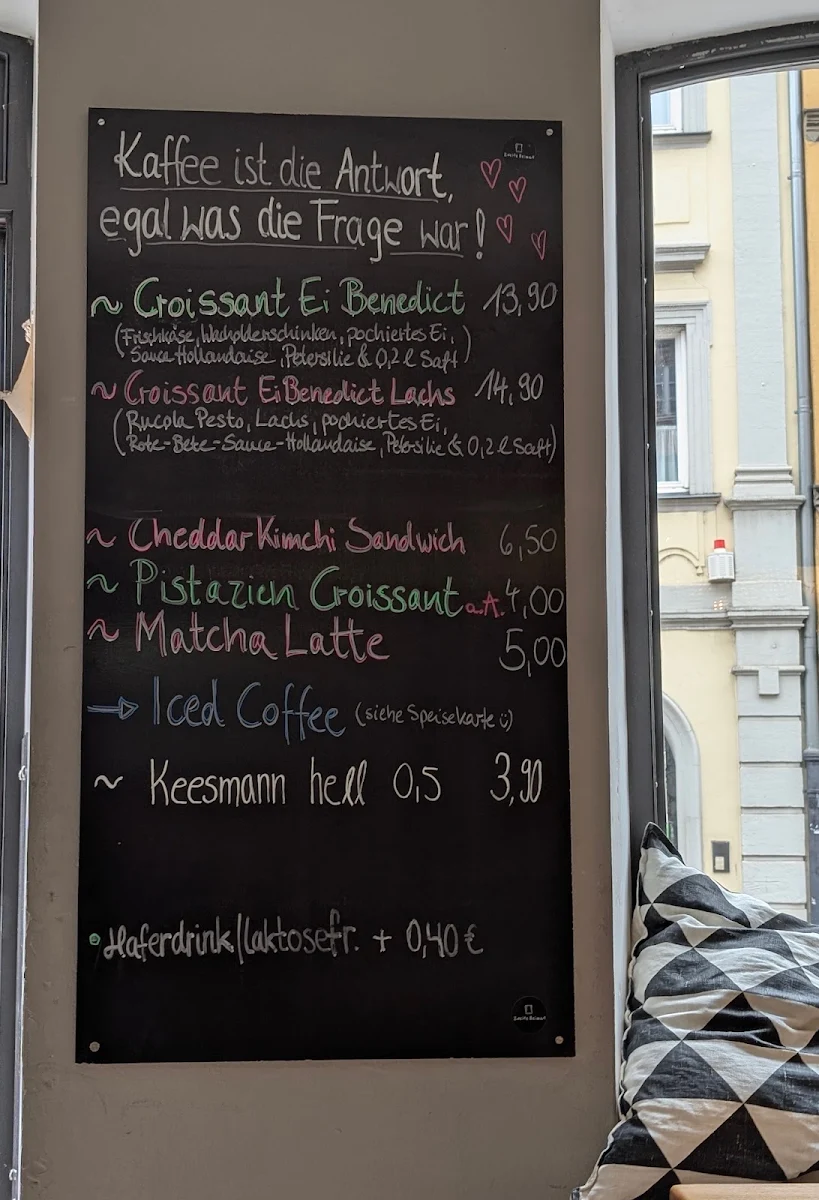 Kaffee ist die Antwort,
egal was die Frage war!
~ Croissant Ei Benedict 13,90
(Frischkäse, Wacholderschinken, pochiertes Ei,
Sauce Hollandaise, Petersilie & 0,2 l Saft)
~ Croissant Ei Benedict Lachs 14,90
(Rucola Pesto, Lachs, pochiertes Ei,
Rote-Bete-Sauce-Hollandaise, Petersilie & 0,2 l Saft)
~ Cheddar Kimchi Sandwich 6,50
~ Pistazien Croissant a.A. 4,00
~ Matcha Latte 5,00
→ Iced Coffee (siehe Speisekarte ü)
~ Keesmann hell 0,5 3,90
• Haferdrink/laktosefr. + 0,40 €